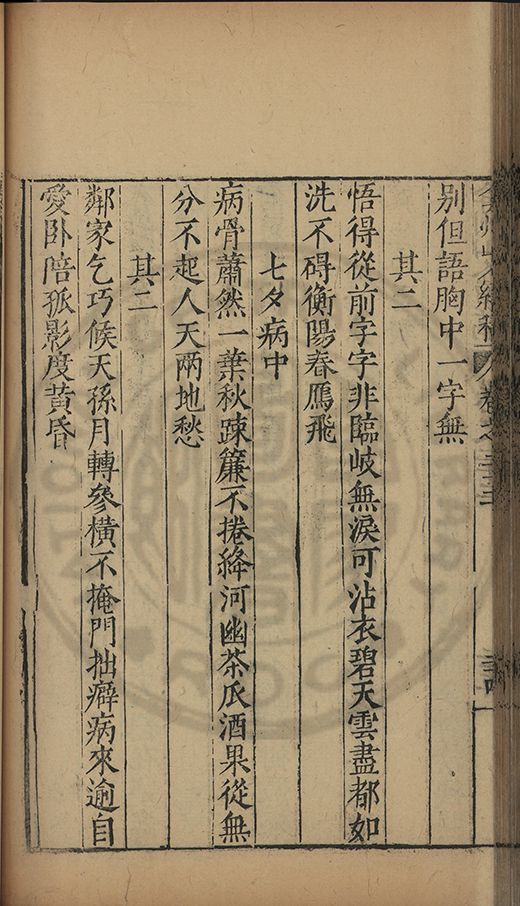 別但語胸中一字無
其二
悟得從前字字非臨岐無淚可沾衣碧天雲盡都如
洗不碍衡陽春鴈飛
七夕病中
病骨蕭然一葉秋踈簾不捲絳河幽茶瓜酒果從無
分不起人天兩地愁
其二
鄰家乞巧候天孫月轉參橫不掩門拙癖病來逾自
愛卧陪孤影度黃昏